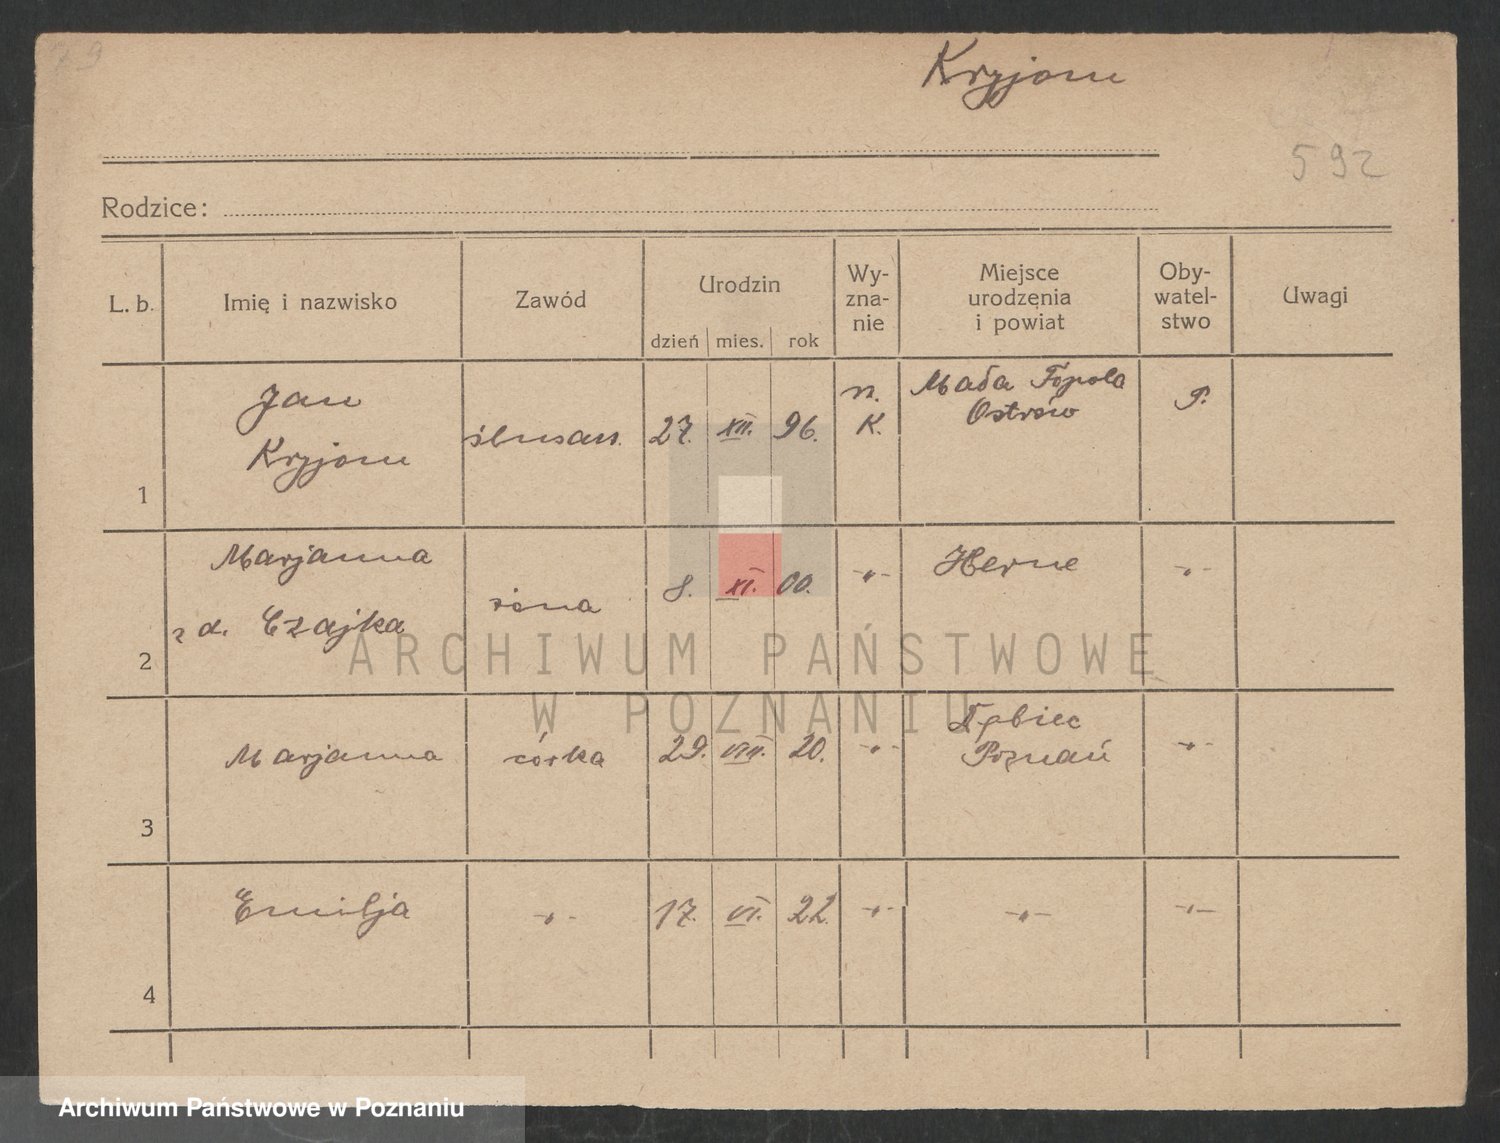 79
Kryjom
592
Rodzice:
L. b.
Imię i nazwisko
Zawód
Urodzin
dzień
mies.
rok
Wy-
zna-
nie
Miejsce
urodzenia
i powiat
Oby-
watel-
stwo
Uwagi
1
Jan
Kryjom
ślusarz.
27.
XII.
96.
rz.
K.
Mała Topola
Ostrów
P.
2
Marjanna
z d. Czajka
żona
8.
XI.
00.
-"-
Herne
-"-
3
Marjanna
córka
29.
VIII.
20.
-"-
Dębiec
Poznań
-"-
4
Emilja
-"-
17.
VI.
22.
-"-
-"-
-"-
ARCHIWUM PAŃSTWOWE
W POZNANIU
Archiwum Państwowe w Poznaniu